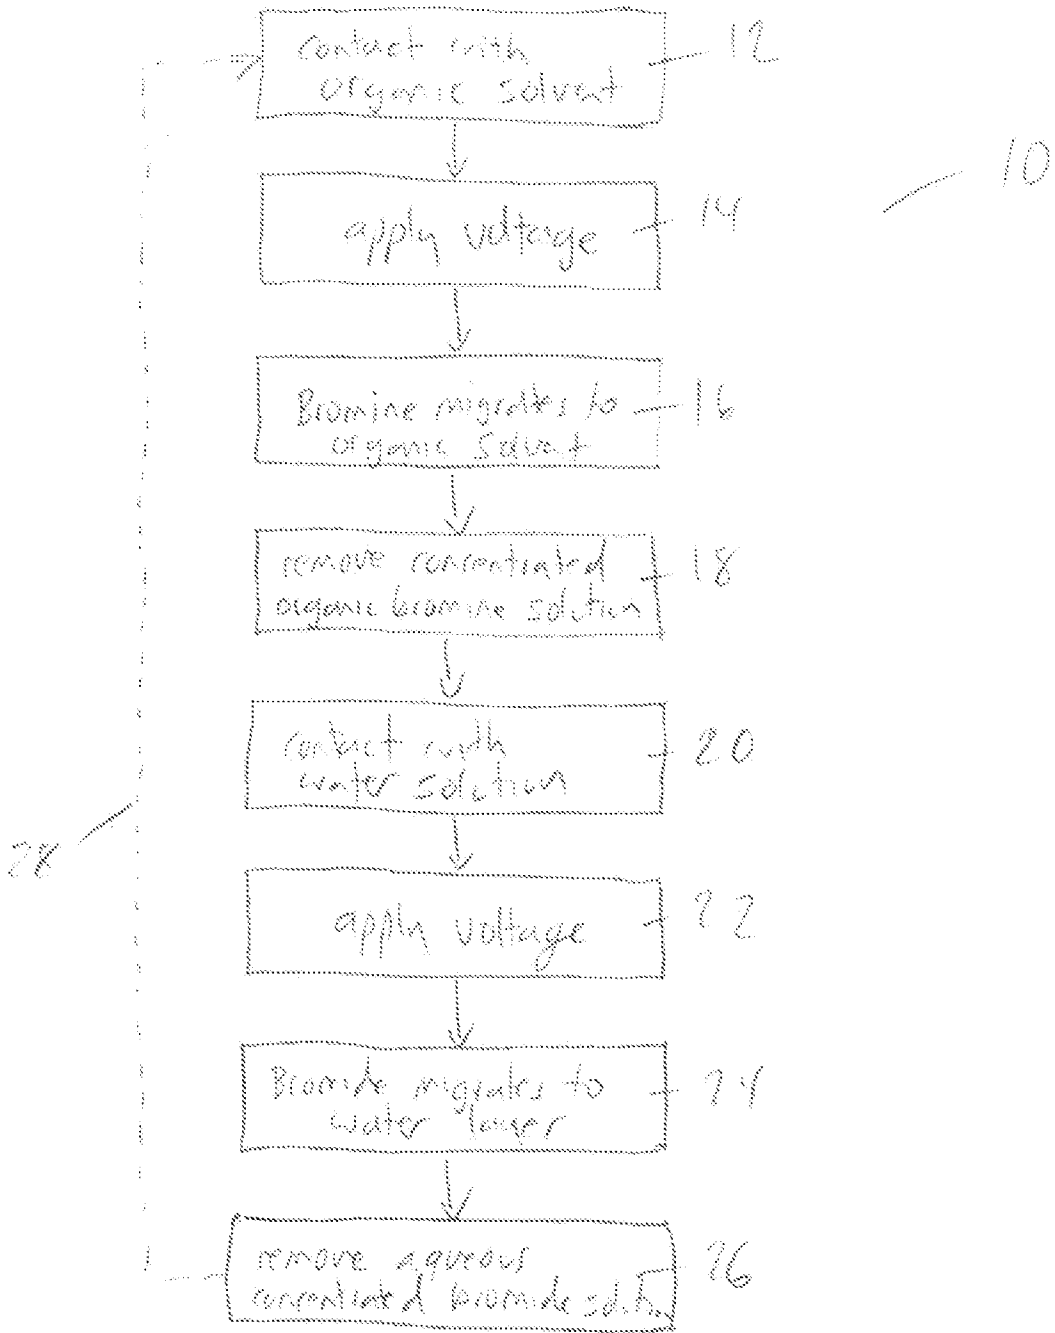 contact with
organic solvent
12
10
apply voltage
14
Bromine migrates to
organic solvent
16
remove concentrated
organic bromine solution
18
contact with
water solution
20
28
apply voltage
22
Bromide migrates to
water layer
24
remove aqueous
concentrated bromide solution
26